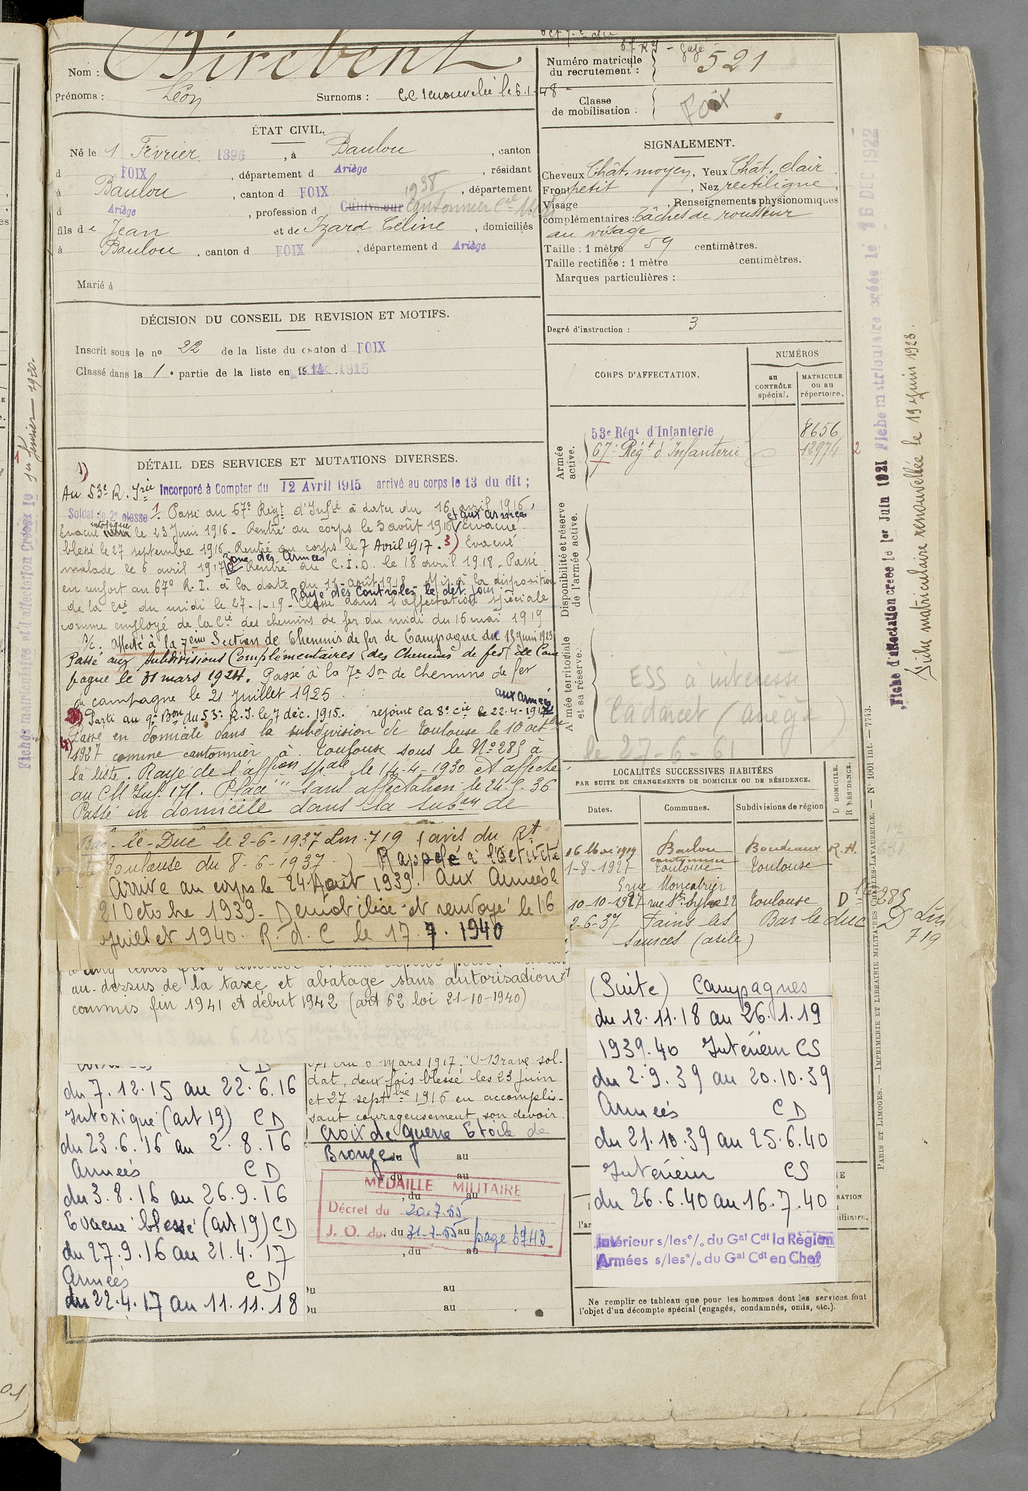 Nom : Birebent
Prénoms : Léon Surnoms : renouvelée le 6-1-48
Numéro matricule du recrutement : 521
Classe de mobilisation : FOIX
ÉTAT CIVIL.
Né le 1 Février 1896, à Baulou, canton
d FOIX, département d Ariège, résidant
à Baulou, canton d FOIX, département
d Ariège, profession d Cultivateur Cantonnier 1938
fils de Jean et de Izard Céline, domiciliés
à Baulou, canton d FOIX, département d Ariège
Marié à
SIGNALEMENT.
Cheveux Chât. moyen, Yeux Chât. clair
Front petit, Nez rectiligne,
Visage Renseignements physionomiques
complémentaires : Tâches de rousseur
au visage
Taille : 1 mètre 59 centimètres.
Taille rectifiée : 1 mètre centimètres.
Marques particulières :
Degré d'instruction : 3
DÉCISION DU CONSEIL DE REVISION ET MOTIFS.
Inscrit sous le no 22 de la liste du canton d FOIX
Classé dans la 1e partie de la liste en 1915
CORPS D'AFFECTATION.
NUMÉROS
au CONTRÔLE spécial.
MATRICULE ou au répertoire.
Armée active.
53e Régt d'Infanterie 8656
67e Régt d'Infanterie 12974
Disponibilité et réserve de l'armée active.
Armée territoriale et sa réserve.
ESS à intéressé
Cadarcet (ariège)
le 27-6-61
DÉTAIL DES SERVICES ET MUTATIONS DIVERSES.
1)
Au 53e R. Irie Incorporé à Compter du 12 Avril 1915 arrivé au corps le 13 du dit ;
Soldat de 2e classe 1. Passé au 67e Régt d'Infie à datu du 16 avril 1916,
Evacué intoxiqué le 23 Juin 1916 - Rentré au corps le 3 août 1916 et aux Armées Evacué
blessé le 27 septembre 1916. Rentré au corps le 7 Avril 1917. 3) Evacué
malade le 6 avril 1917 Zone des Armées Rentré au C.I.D. le 18 avril 1918. Passé
en renfort au 67e R.I. à la date du 11 août 1918. Mis à la disposition
de la Cie du midi le 27-1-19 - Rayé des controles le dit jour Classé dans l'affectation spéciale
comme employé de la Cie des chemins de fer du midi du 16 mai 1919
affecté à la 7ème Section de Chemins de fer de Campagne du 15 juin 1923
Passé aux subdivisions Complémentaires des Chemins de fer de Cam
pagne le 31 mars 1924. Passé à la 7e Son de Chemins de fer
de campagne le 21 Juillet 1925
2) Parti au 9e Bon du 53e R.I. le 7 déc. 1915. rejoint la 8e cie aux armées le 22-4-1917
Passé en domicile dans la subdivision de Toulouse le 10 octbre
1927 comme cantonnier à Toulouse sous le No 285 à
la liste. Rayé de l'affon spale le 14-4-1930 et affecté
au CM Inf. 171. Placé "sans affectation" le 24-5-36
Passé en domicile dans la subon de
Bar-le-Duc le 2-6-1937 Lm. 719 (avis du Rt
Toulouse du 8-6-1937 -) Rappelé à l'activité
Arrivé au corps le 24 Août 1939. Aux Armées le
21 Octobre 1939 - Démobilisé et renvoyé le 16
juillet et 1940. R. d. C le 17. 7. 1940
au-dessus de la taxe et abatage sans autorisation
commis fin 1941 et début 1942 (art 62 loi 21-10-1940)
LOCALITÉS SUCCESSIVES HABITÉES
PAR SUITE DE CHANGEMENTS DE DOMICILE OU DE RÉSIDENCE.
Dates. Communes. Subdivisions de région D. DOMICILE. R RÉSIDENCE.
16 Mai 1919 Baulou Bordeaux R.
1-8-1927 cantonnier Toulouse Toulouse
5 rue Moncabrier
10-10-1927 rue St 22 Toulouse D 285
2-6-37 Fains les Bar le duc D Lm
Sources (asile) 719
CD
du 7.12.15 au 22.6.16
Intoxiqué (art 19) CD
du 23.6.16 au 2.8.16
Armées CD
du 3.8.16 au 26.9.16
Evacué blessé (art 19) CD
du 27.9.16 au 21.4.17
Armées CD
du 22.4.17 au 11.11.18
mars 1917, "Brave sol-
dat, deux fois blessé, les 23 juin
et 27 septbre 1916 en accomplis-
sant courageusement son devoir
Croix de guerre Etoile de
Bronze
MÉDAILLE MILITAIRE
Décret du 20.7.55
J. O. du 31-7-55 page 6743
, du au
Du au
Du au
(Suite) Campagnes
du 12.11.18 au 26.1.19
1939.40 Intérieur CS
du 2.9.39 au 20.10.39
Armées CD
du 21.10.39 au 25.6.40
Intérieur CS
du 26.6.40 au 16.7.40
Intérieur s/les o/. du Gal Cdt la Région
Armées s/les o/. du Gal Cdt en Chef
Ne remplir ce tableau que pour les hommes dont les services font
l'objet d'un décompte spécial (engagés, condamnés, omis, etc.).
PARIS ET LIMOGES. — IMPRIMERIE ET LIBRAIRIE MILITAIRES CHARLES-LAVAUZELLE. — No 1001 int. — 7743.
Fiche d'affectation créée le 1er Juin 1921 Fiche matriculaire créée le 16 DEC 1922
Fiche matriculaire renouvelée le 19 juin 1923.
Fiches matriculaires et d'affectation Créées le 1er Février 1920.